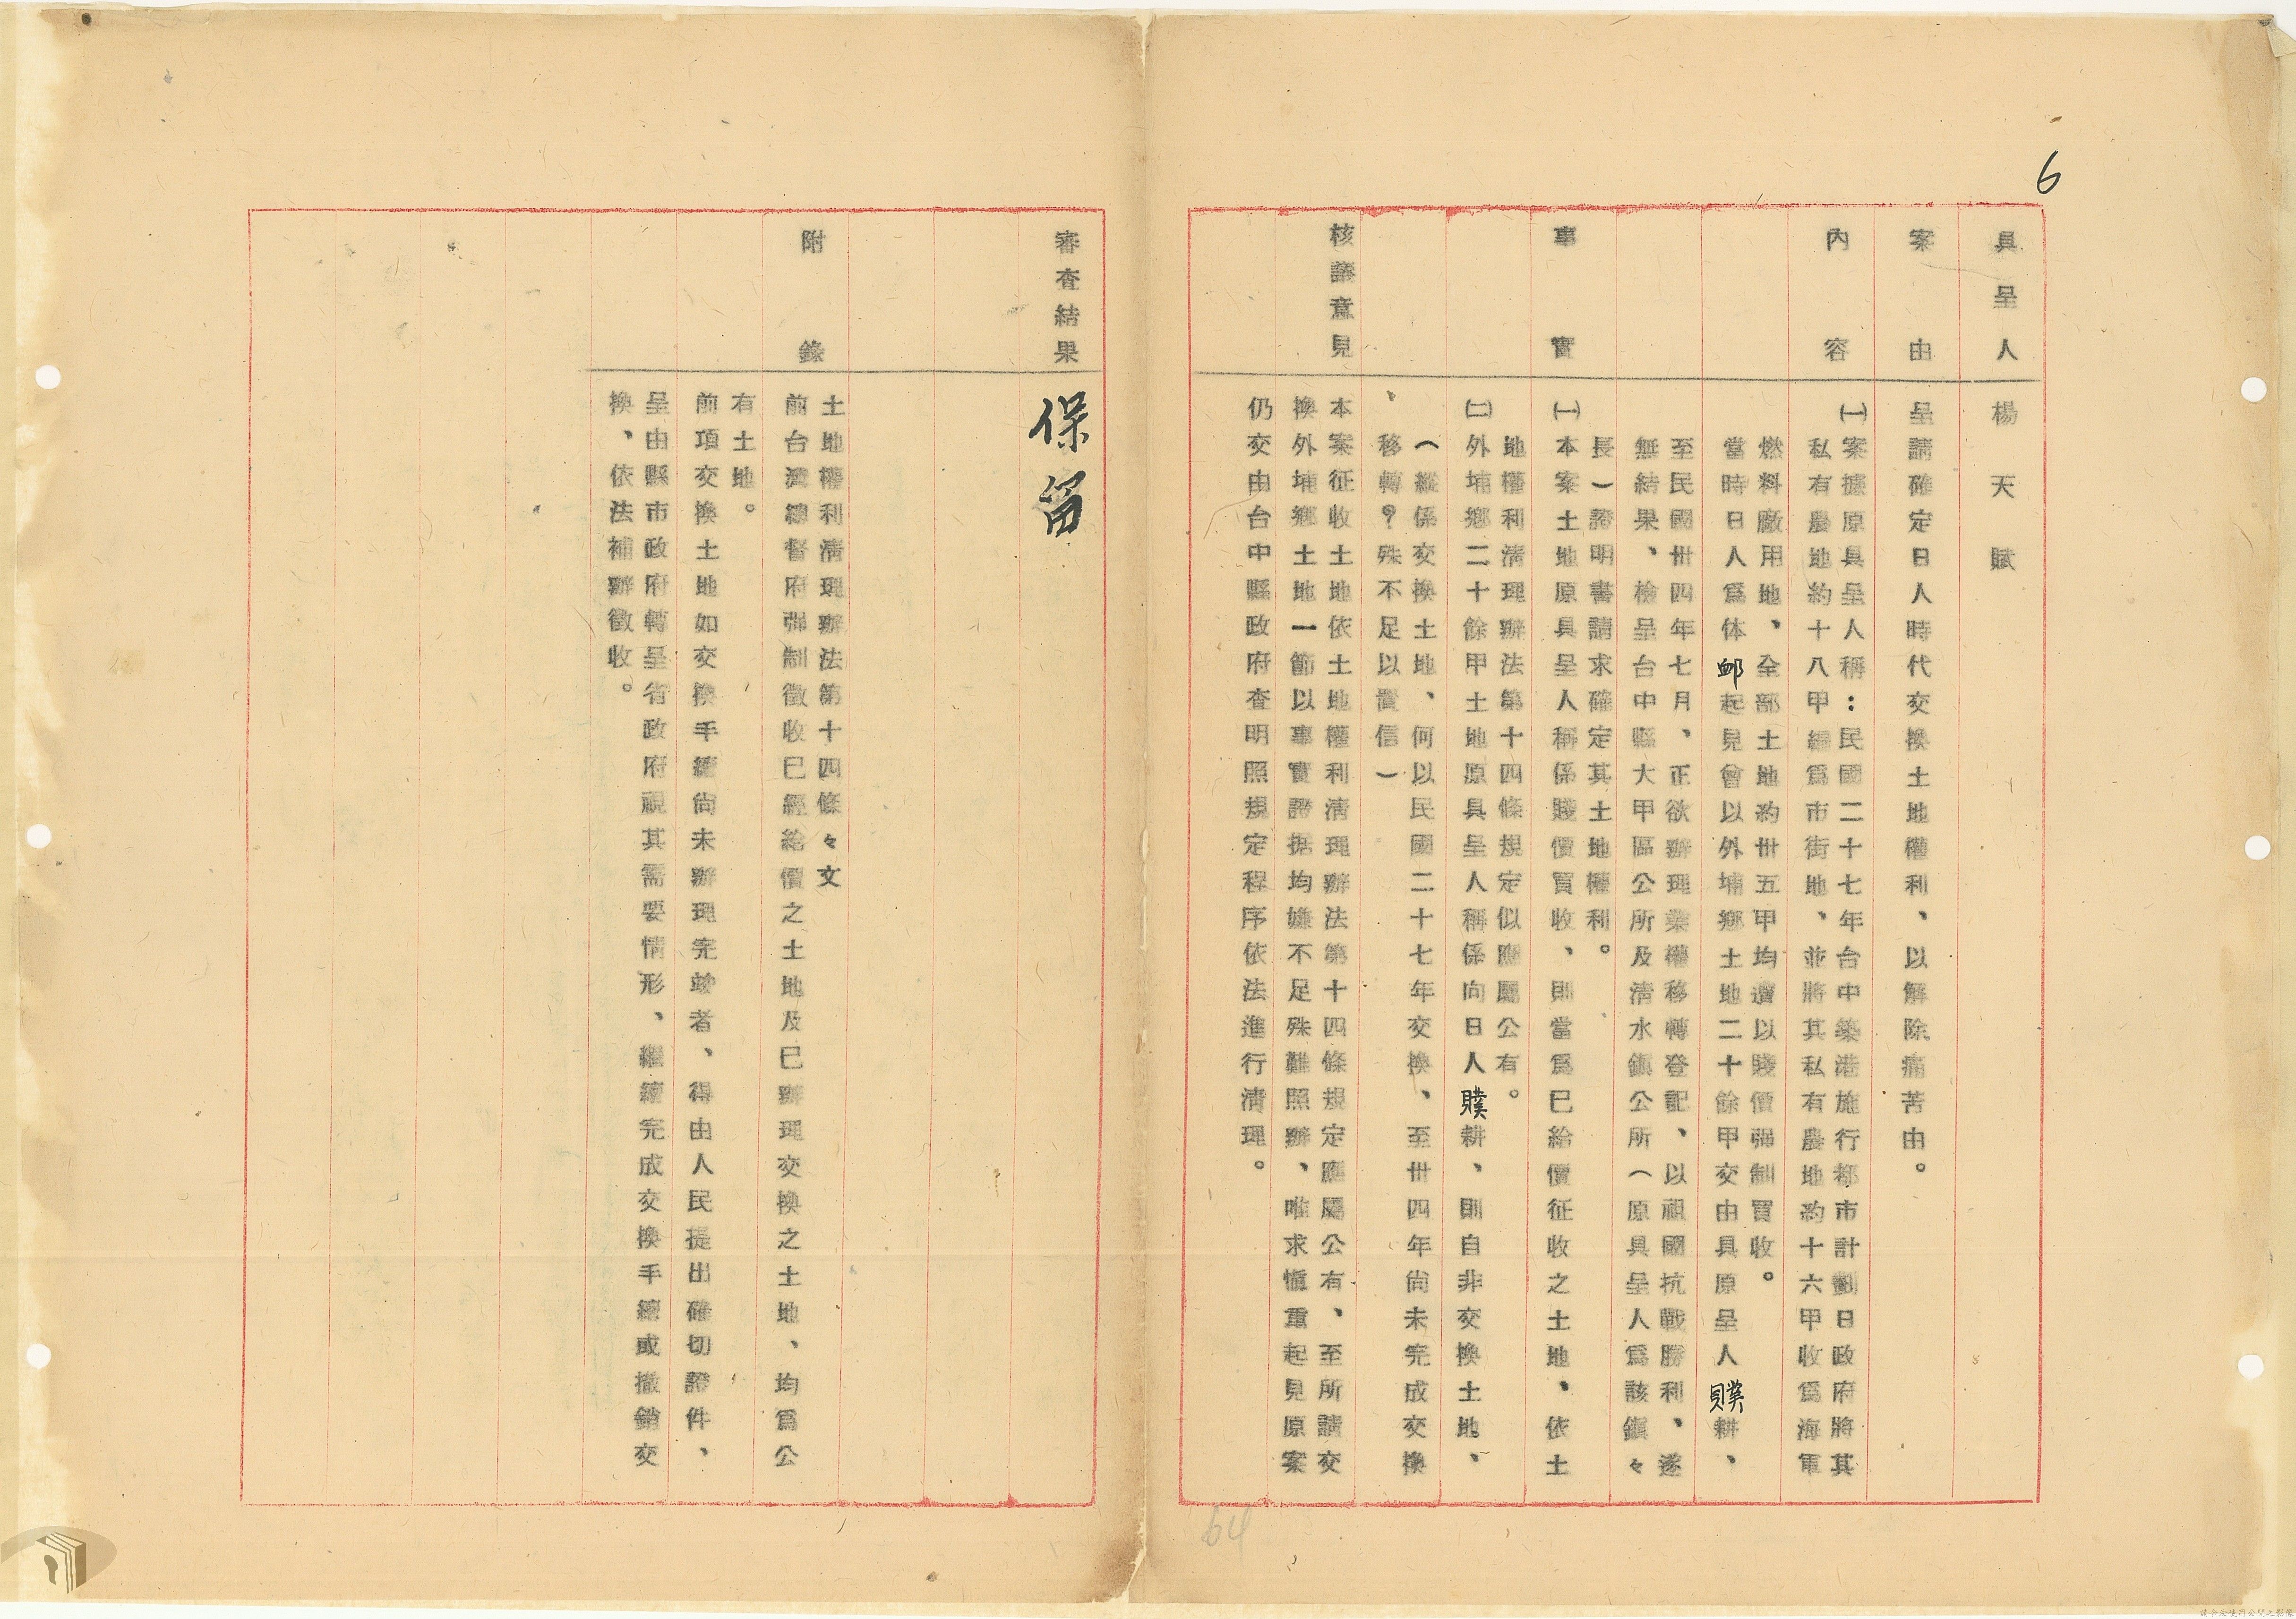 6
具呈人
楊天賦
案由
呈請確定日人時代交換土地權利、以解除痛苦由。
內容
㈠案據原具呈人稱：民國二十七年台中築港施行都市計劃日政府將其
私有農地約十八甲編爲市街地、並將其私有農地約十六甲收爲海軍
燃料廠用地、全部土地約卅五甲均遭以賤價强制買收。
當時日人爲体卹起見曾以外埔鄉土地二十餘甲交由具原呈人贌耕、
至民國卅四年七月、正欲辦理業權移轉登記、以祖國抗戰勝利、遂
無結果、檢呈台中縣大甲區公所及清水鎭公所（原具呈人爲該鎭々
長）證明書請求確定其土地權利。
事實
㈠本案土地原具呈人稱係賤價買收、則當爲已給價征收之土地、依土
地權利清理辦法第十四條規定似應屬公有。
㈡外埔鄉二十餘甲土地原具呈人稱係向日人贌耕、則自非交換土地、
（縱係交換土地、何以民國二十七年交換、至卅四年尙未完成交換
移轉？殊不足以置信）
核議意見
本案征收土地依土地權利清理辦法第十四條規定應屬公有、至所請交
換外埔鄉土地一節以事實證据均嫌不足殊難照辦、唯求愼重起見原案
仍交由台中縣政府查明照規定程序依法進行清理。
64
審查結果
保留
附錄
土地權利清理辦法第十四條々文
前台灣總督府强制徵收已經給價之土地及已辦理交換之土地、均爲公
有土地。
前項交換土地如交換手續尙未辦理完竣者、得由人民提出確切證件、
呈由縣市政府轉呈省政府視其需要情形、繼續完成交換手續或撤銷交
換、依法補辦徵收。